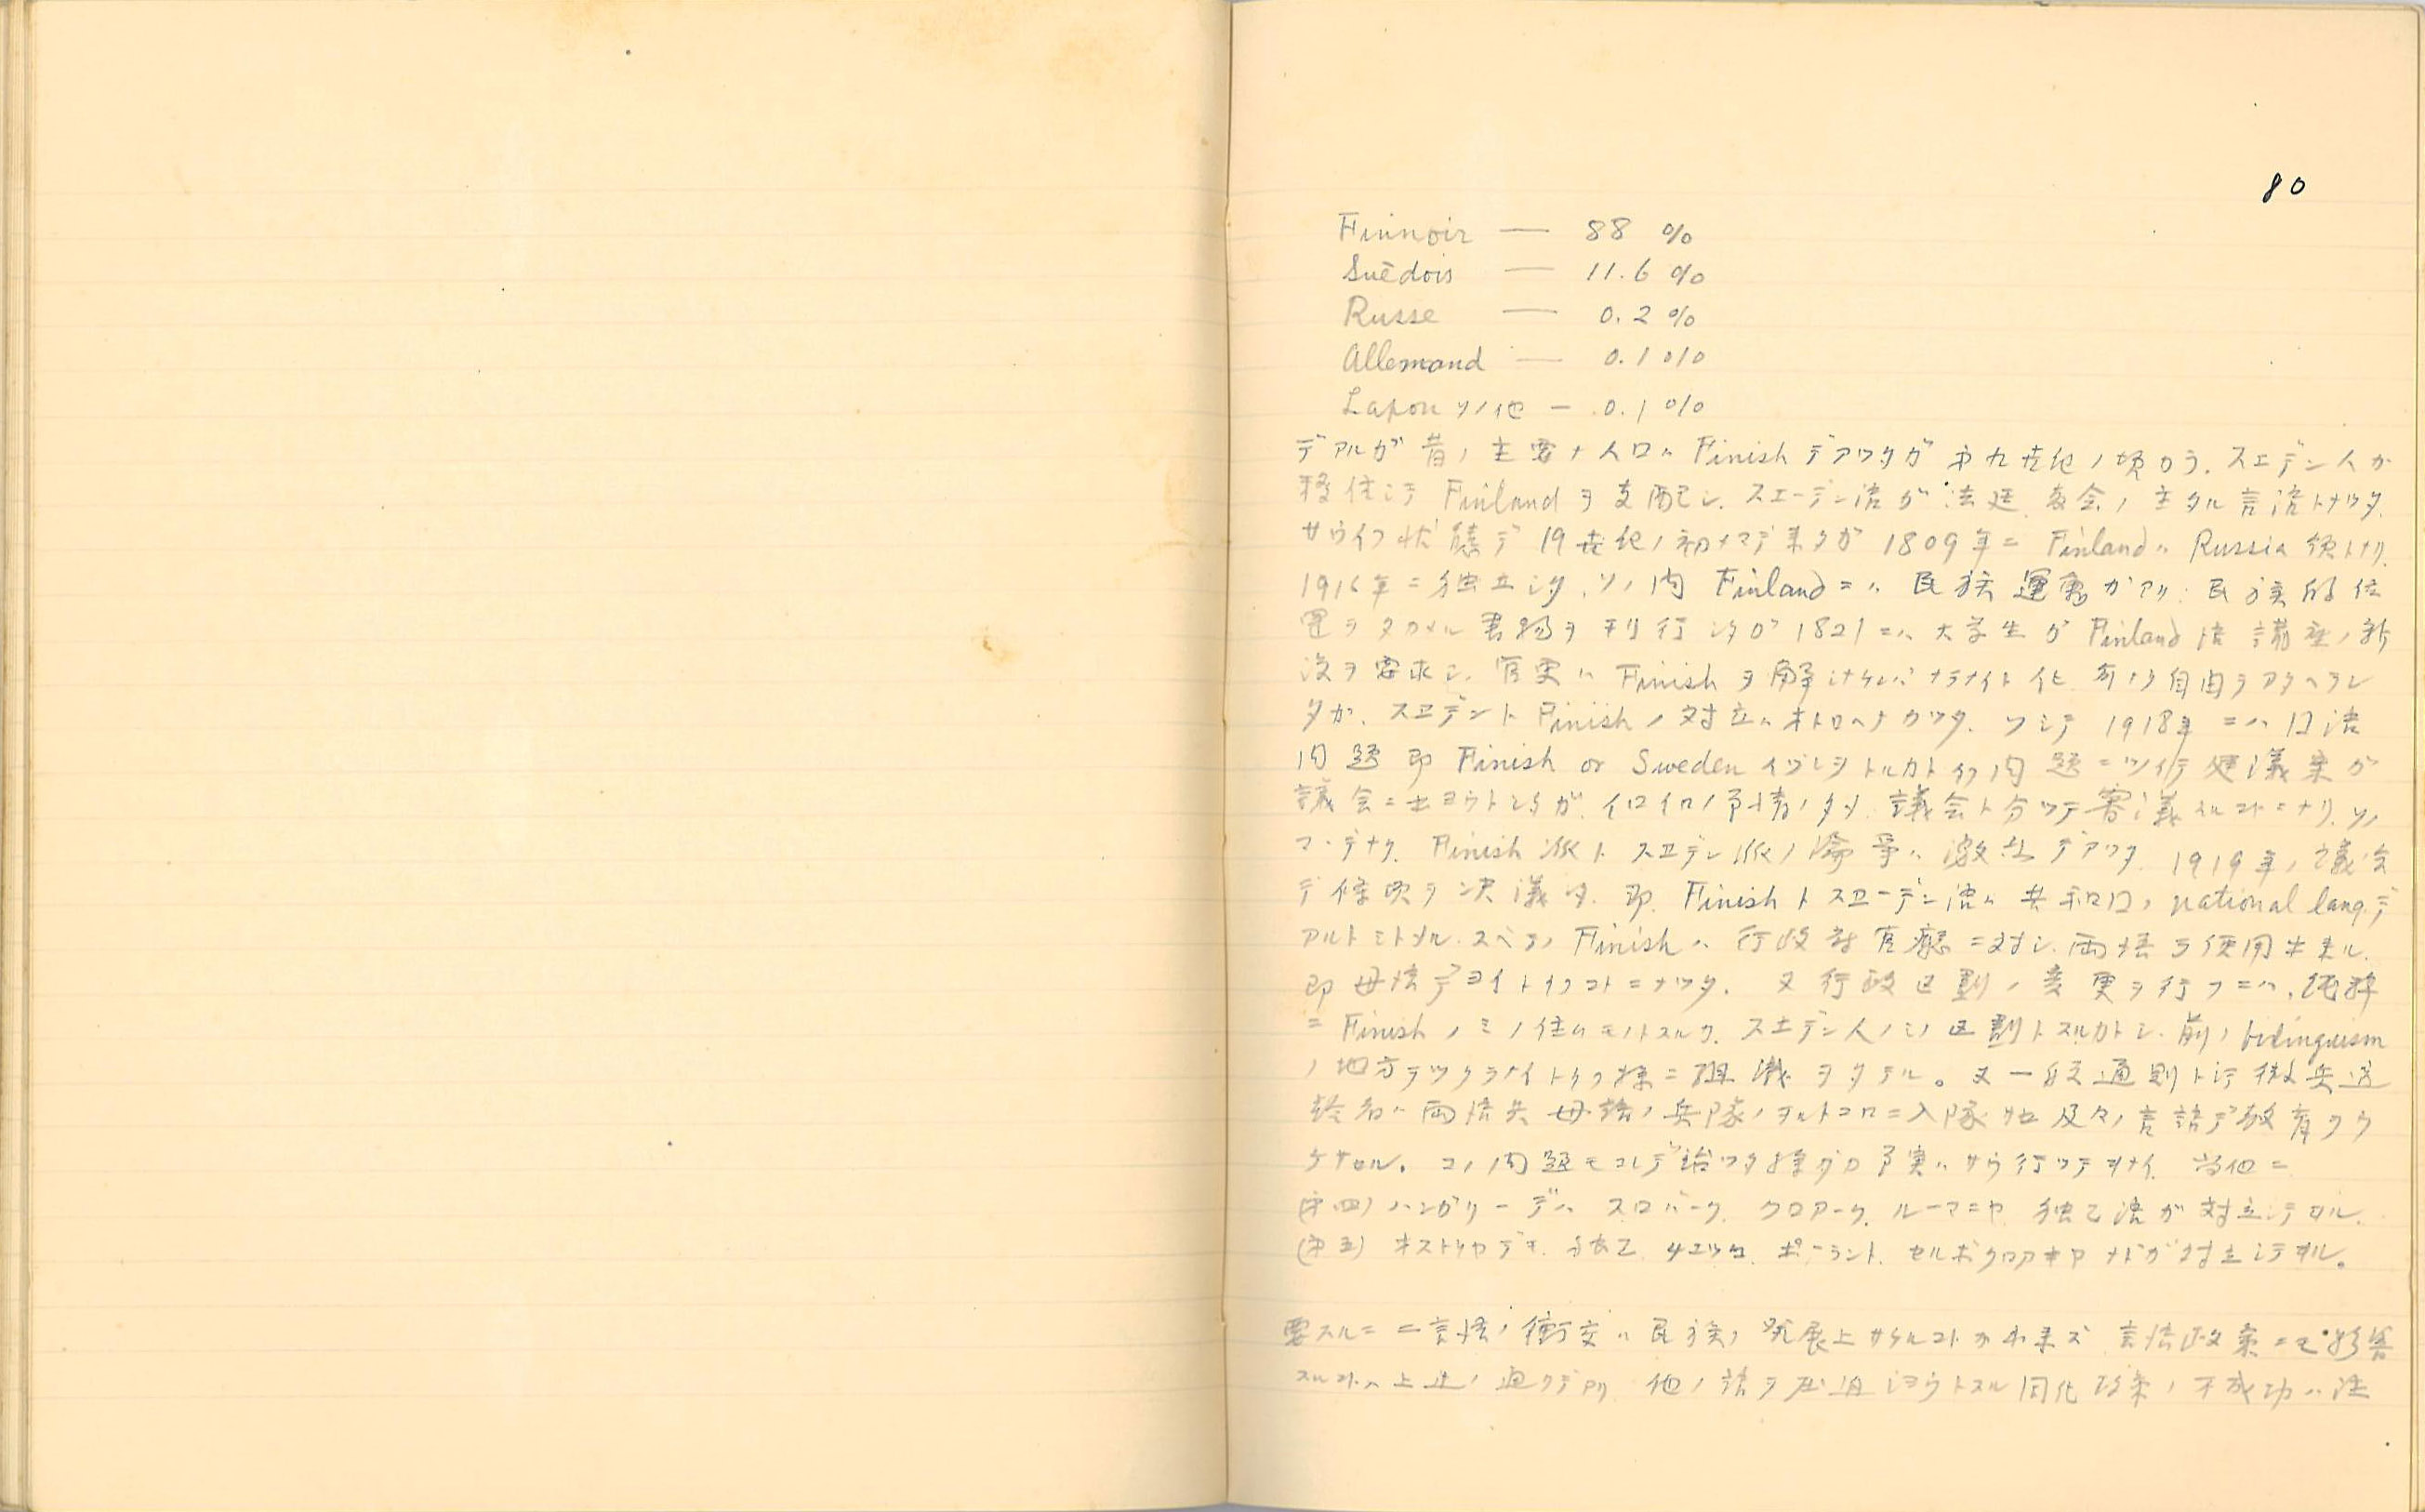 80
Finnoir — 88 %
Suēdois — 11.6 %
Russe — 0.2 %
Allemand — 0.1 %
Lapon ソノ他 — 0.1 %
デアルガ 昔ノ主要ナ人口ハ Finish デアツタガ 第九世紀ノ頃カラ. スエデン人ガ
移住シテ Finland ヲ支配シ. スエーデン語ガ 法廷. 教会ノ主タル言語トナツタ.
サウイフ状態デ 19世紀ノ初メマデ来タガ 1809年ニ Finlandハ Russia 領トナリ.
1916年ニ独立シタ. ソノ内 Finlandニハ 民族運動ガアリ. 民族的位
置ヲタカメル書物ヲ刊行シタガ 1821ニハ大学生ガ Finland語講座ノ新
設ヲ要求シ. 官吏ハ Finish ヲ解シナケレバナラナイト化. 自由ヲアタヘラレ
タガ. スエデント Finishノ対立ハオトロヘナカツタ. ソシテ 1918年ニハ口語
問題即 Finish or Sweden イヅレヲトルカトイフ問題ニツイテ建議案ガ
議会ニ出ヨウトシタガ. イロイロノ事情ノタメ 議会ト分ツテ審議スルコトニナリ. ソノ
マデナク. Finish派トスエデン派ノ論争ハ激烈デアツタ. 1919年ノ議会
デ條項ヲ決議シタ. 即. Finishトスエーデン語ハ共和口ノ national lang.デ
アルトミトメル. スベテノ Finishハ 行政官廳ニ対シ. 両語ヲ使用出来ル.
即母語デヨイトイフコトニナツタ. 又行政区劃ノ変更ヲ行フニハ. 純粋
ニ Finishノミノ住ムモノトスルカ. スエデン人ノミノ区劃トスルカトシ. 前ノ bilinguism
ノ地方デツクラナイトイフ様ニ組織ヲタテル。又一般通則トシテ徴兵適
齢者ハ両語共母語ノ兵隊ノヲルトコロニ入隊セ 及々ノ言語デ教育ヲウ
ケサセル. コノ問題モコレデ治ツタ様ダガ事実ハサウ行ツテヰナイ. 当他ニ
(第四) ハンガリーデハ スロバーク. クロアーク. ルーマニヤ 独乙語ガ対立シテヰル.
(第五) オストリヤデモ. 独乙. ツエツコ. ポーラント. セルボクロアキヤナドガ対立シテヰル。
要スルニ 二言語ノ衝突ハ民族ノ発展上サケルコトガ出来ズ 言語政策ニテ妨害
スルコトハ上述ノ通リデアリ 他ノ語ヲ圧迫シヨウトスル同化政策ノ不成功ハ注